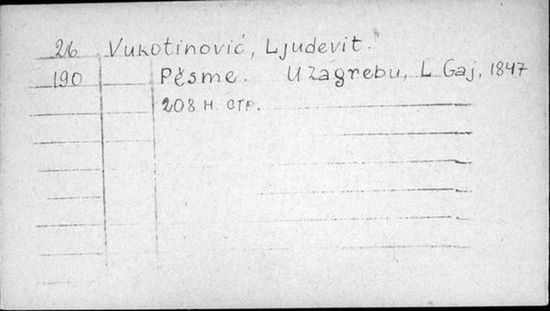 26 Vukotinović, Ljudevit.
190 Pěsme. U Zagrebu, L. Gaj, 1847
208 н. стр.